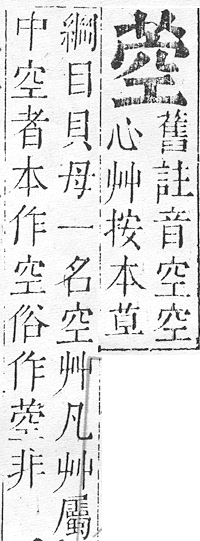 䓚
舊註音空空
心艸按本草
綱目貝母一名空艸凡艸屬
中空者本作空俗作䓚非